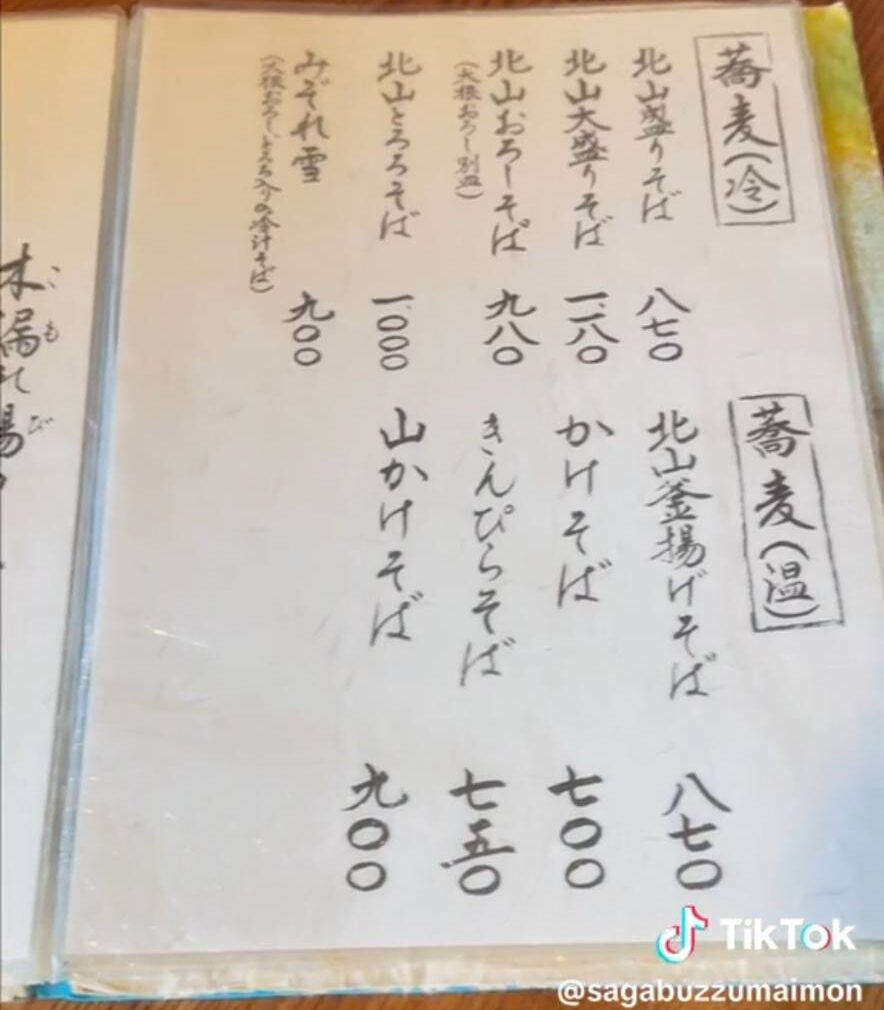 蕎麦(冷)
北山盛りそば 八七〇
北山大盛りそば 一、一八〇
北山おろしそば 九八〇
(大根おろし別皿)
北山とろろそば 一、〇〇〇
みぞれ雪 九〇〇
(大根おろし、とろろ入りの冷汁そば)
蕎麦(温)
北山釜揚げそば 八七〇
かけそば 七〇〇
きんぴらそば 七五〇
山かけそば 九〇〇
TikTok
@sagabuzzumaimon